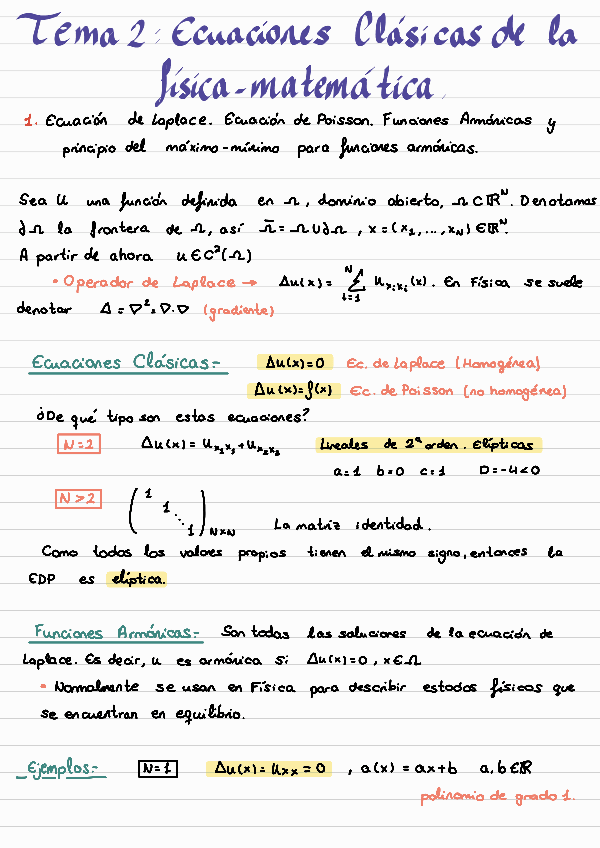 Tema 2: Ecuaciones Clásicas de la
física-matemática.
1. Ecuación de Laplace. Ecuación de Poisson. Funciones Armónicas y
principio del máximo-mínimo para funciones armónicas.
Sea U una función definida en Ω, dominio abierto, Ω⊂ℝᴺ. Denotamos
∂Ω la frontera de Ω, así Ω̄ = Ω∪∂Ω, x=(x₁,...,x_N)∈ℝᴺ.
A partir de ahora u∈C²(Ω)
• Operador de Laplace → Δu(x) = Σ_{i=1}^{N} u_{x_i x_i}(x). En Física se suele
denotar Δ = ∇² = ∇·∇ (gradiente)
Ecuaciones Clásicas:- Δu(x)=0 Ec. de Laplace (Homogénea)
Δu(x)=f(x) Ec. de Poisson (no homogénea)
¿De qué tipo son estas ecuaciones?
N=2 Δu(x) = u_{x₁x₁} + u_{x₂x₂} Lineales de 2ª orden. Elípticas
a=1 b=0 c=1 D=-4<0
N>2 (1 1 ⋱ 1)_{N×N} La matriz identidad.
Como todos los valores propios tienen el mismo signo, entonces la
EDP es elíptica.
Funciones Armónicas:- Son todas las soluciones de la ecuación de
Laplace. Es decir, u es armónica si Δu(x)=0, x∈Ω
• Normalmente se usan en Física para describir estados físicos que
se encuentran en equilibrio.
Ejemplos:- N=1 Δu(x) = u_{xx} = 0 , a(x) = ax+b a,b∈ℝ
polinomio de grado 1.